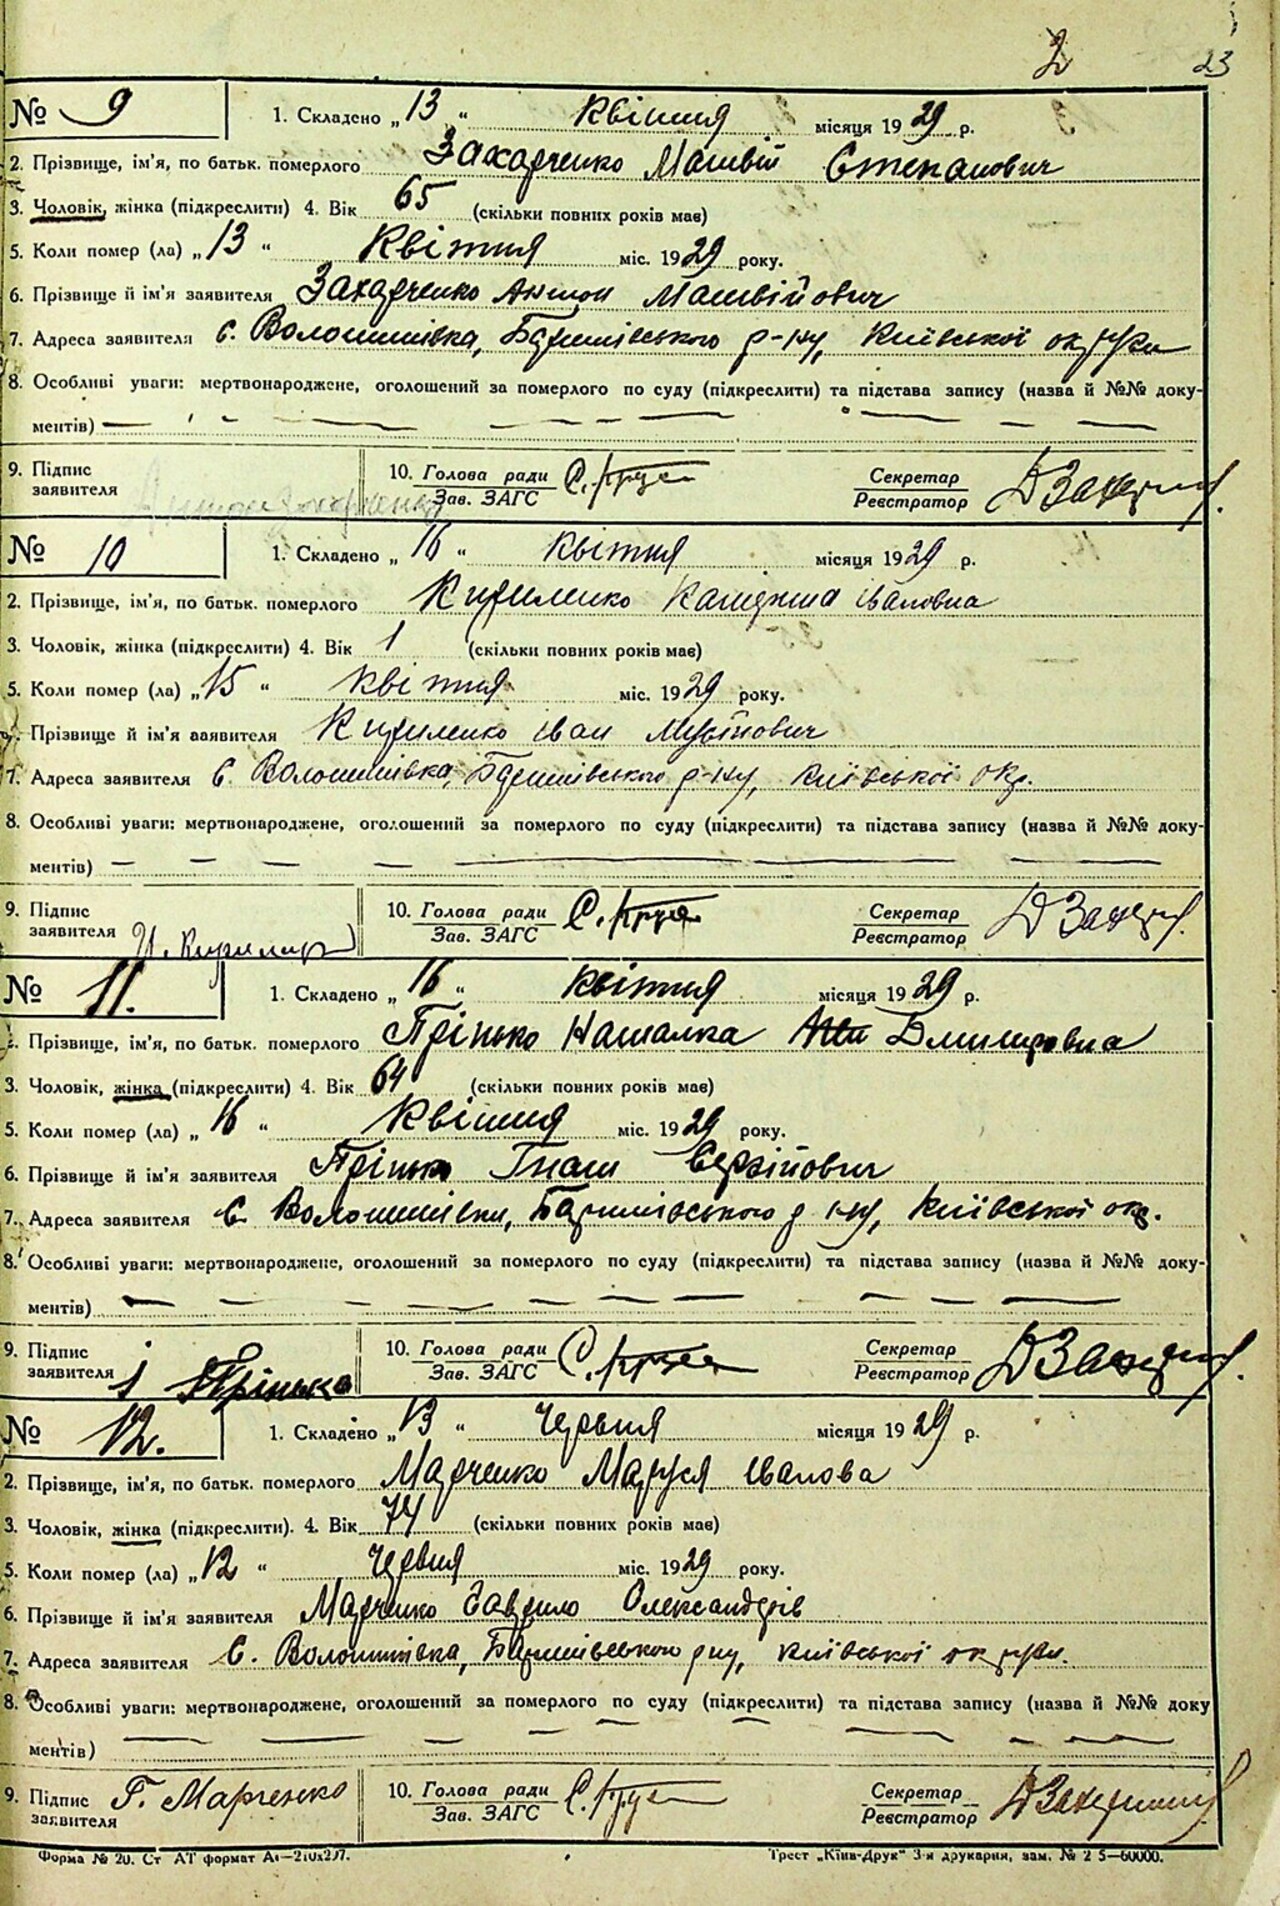 2 23
№ 9 1. Складено „ 13 “ Квітня місяця 1929 р.
2. Прізвище, ім'я, по батьк. померлого Захарченко Матвій Степанович
3. Чоловік, жінка (підкреслити) 4. Вік 65 (скільки повних років має)
5. Коли помер (ла) „ 13 “ Квітня міс. 1929 року.
6. Прізвище й ім'я заявителя Захарченко Антон Матвійович
7. Адреса заявителя с. Волошинівка, Баришівського р-ну, Київської округи
8. Особливі уваги: мертвонароджене, оголошений за померлого по суду (підкреслити) та підстава запису (назва й №№ доку-
ментів) —
9. Підпис заявителя Антон Захарченко 10. Голова ради Зав. ЗАГС С. Секретар Реєстратор
№ 10 1. Складено „ 16 “ квітня місяця 1929 р.
2. Прізвище, ім'я, по батьк. померлого Кириленко Івановна
3. Чоловік, жінка (підкреслити) 4. Вік 1 (скільки повних років має)
5. Коли помер (ла) „ 15 “ квітня міс. 1929 року.
Прізвище й ім'я заявителя Кириленко Іван
7. Адреса заявителя с. Волошинівка, Баришівського р-ну, Київської окр.
8. Особливі уваги: мертвонароджене, оголошений за померлого по суду (підкреслити) та підстава запису (назва й №№ доку-
ментів) —
9. Підпис заявителя И. 10. Голова ради Зав. ЗАГС С. Секретар Реєстратор
№ 11. 1. Складено „ 16 “ квітня місяця 1929 р.
Прізвище, ім'я, по батьк. померлого Прінько Наталка Дмитровна
3. Чоловік, жінка (підкреслити) 4. Вік 64 (скільки повних років має)
5. Коли помер (ла) „ 16 “ Квітня міс. 1929 року.
6. Прізвище й ім'я заявителя Прінько Гнат Сергійович
7. Адреса заявителя с. Волошинівки, Баришівського р-ну, Київської окр.
8. Особливі уваги: мертвонароджене, оголошений за померлого по суду (підкреслити) та підстава запису (назва й №№ доку-
ментів) —
9. Підпис заявителя і Прінько 10. Голова ради Зав. ЗАГС С. Секретар Реєстратор
№ 12. 1. Складено „ 13 “ Червня місяця 1929 р.
2. Прізвище, ім'я, по батьк. померлого Марченко Маруся Іванова
3. Чоловік, жінка (підкреслити). 4. Вік 74 (скільки повних років має)
5. Коли помер (ла) „ 12 “ Червня міс. 1929 року.
6. Прізвище й ім'я заявителя Марченко Гаврило Олександрів
7. Адреса заявителя С. Волошинівка, Баришівського рну, Київської округи.
8. Особливі уваги: мертвонароджене, оголошений за померлого по суду (підкреслити) та підстава запису (назва й №№ доку
ментів) —
9. Підпис заявителя Г. Марченко 10. Голова ради Зав. ЗАГС С. Секретар Реєстратор
Форма № 20. Ст АТ формат А1—210х297. Трест „Київ-Друк“ 3-я друкарня, зам. № 2 5—60000.